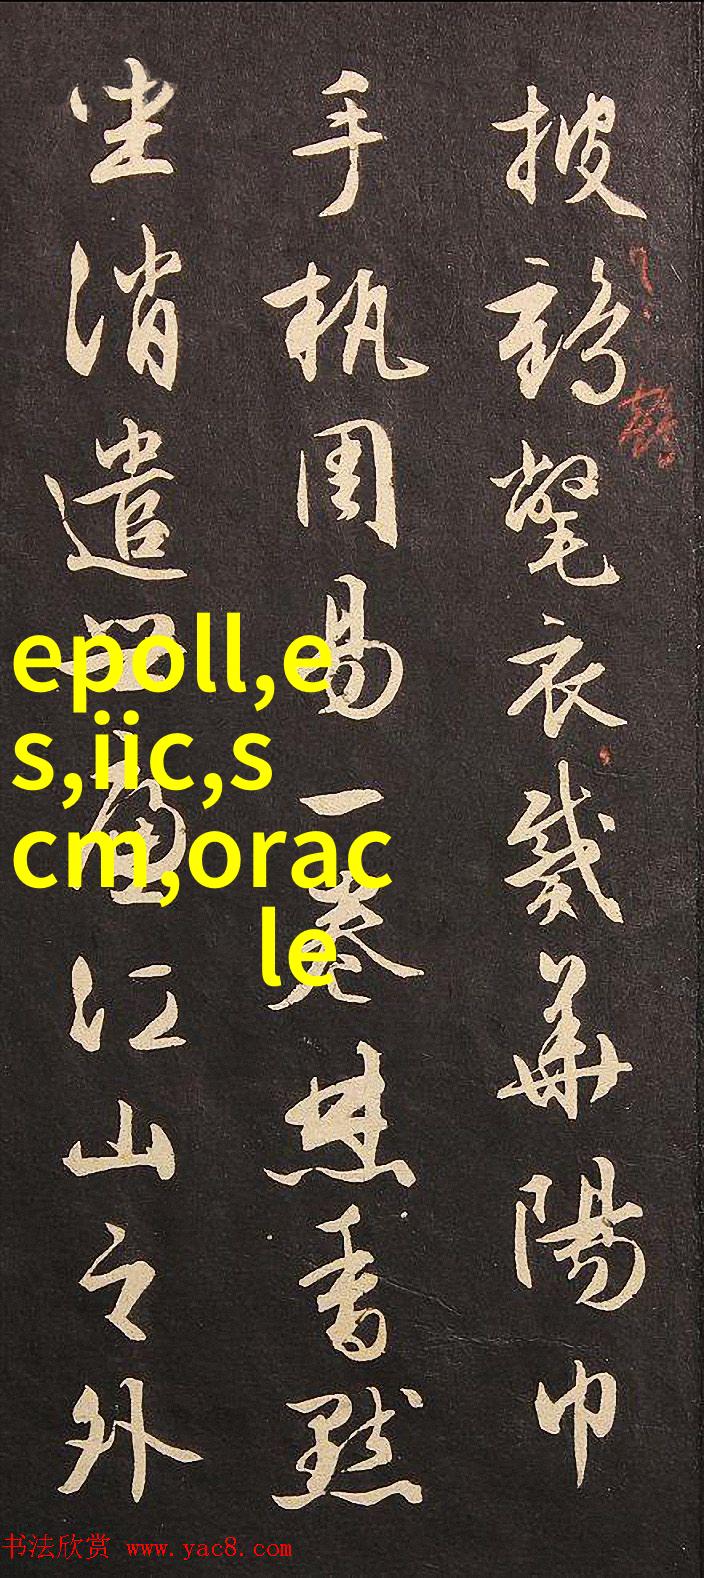 披鶴氅衣戴華陽巾
手执周易一卷焚香默
坐消遣世慮江山之外
鶴
epoll,e
s,iic,s
cm,orac
le
书法欣赏 www.yac8.com